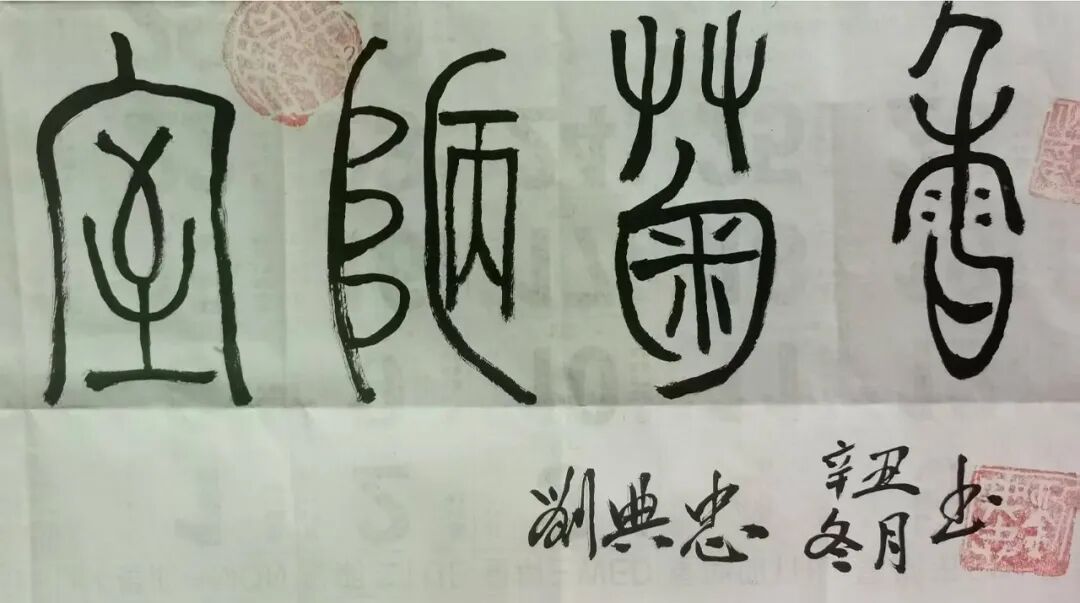 香菊陋室
劉典忠
辛丑
冬月
书